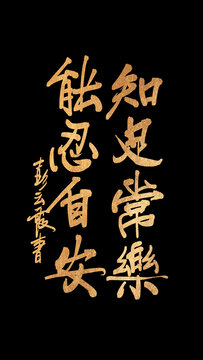 知足常樂
能忍自安
彭云霞書